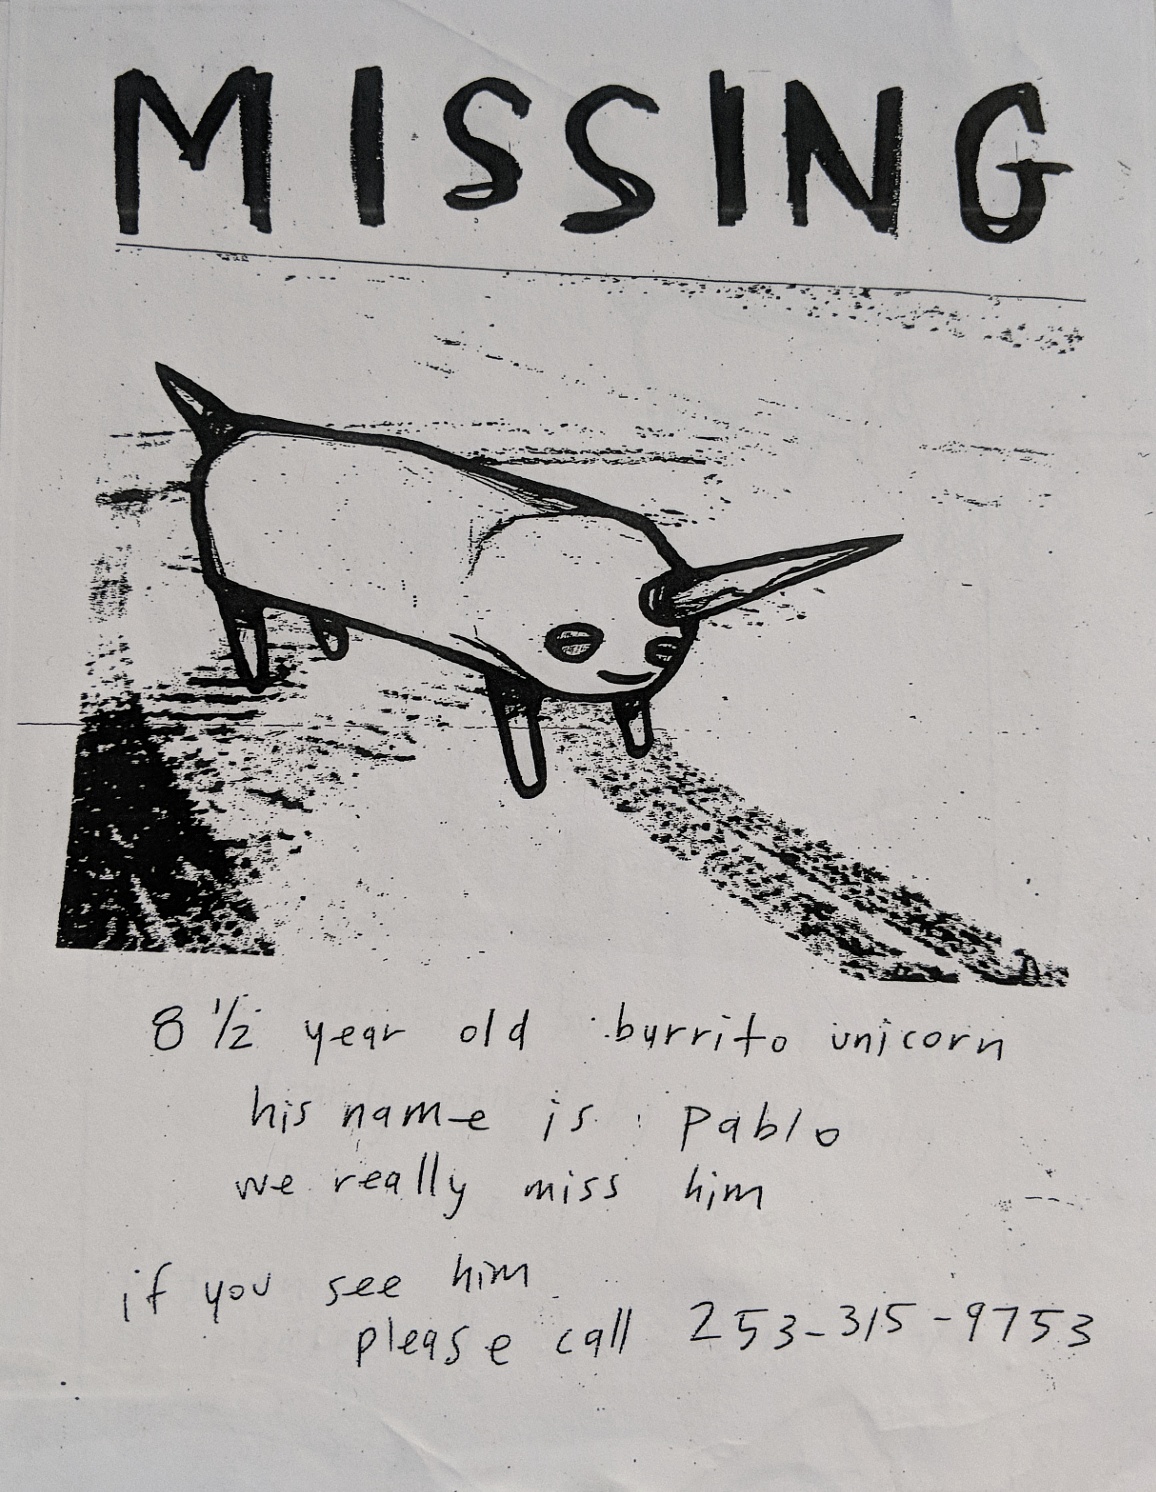 MISSING
8 1/2 year old burrito unicorn
his name is pablo
we really miss him
if you see him
please call 253-315-9753